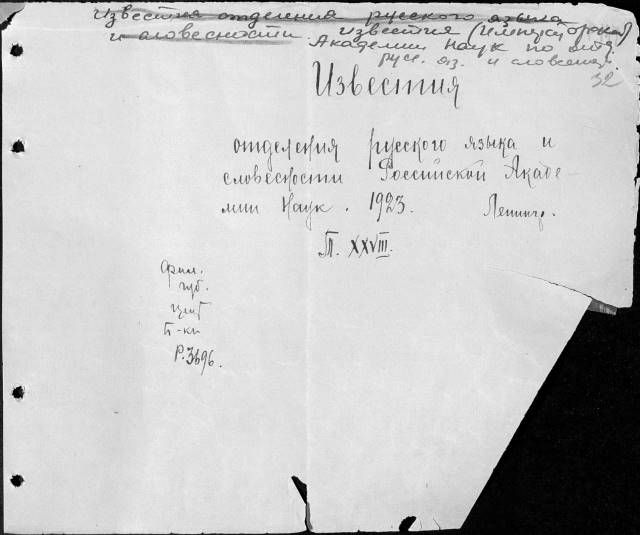 Известия отделения русского языка
и словесности. Известия (Императорской)
Академии Наук по отд.
русс. яз. и словесн.
32
Известия
отделения русского языка и
словесности Российской Акаде-
мии Наук. 1923. Ленингр.
Т. XXVIII.
Фил.
губ.
Б-ки
Р.3696.